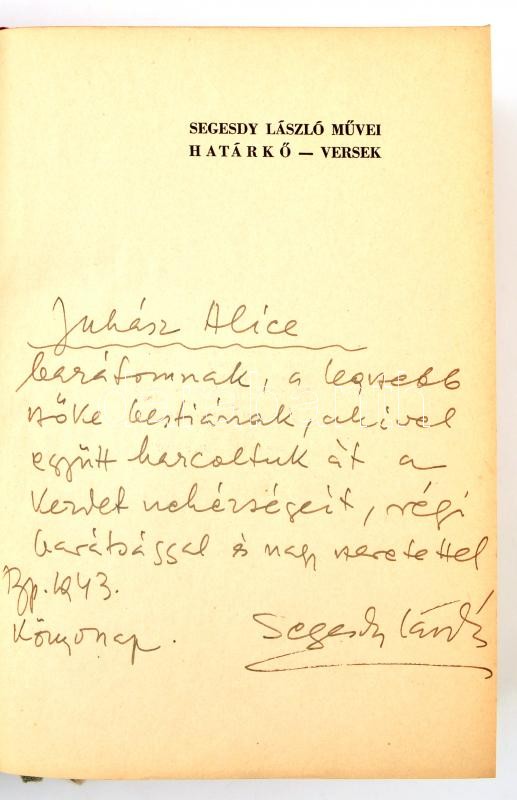 SEGESDY LÁSZLÓ MŰVEI
HATÁRKŐ — VERSEK
Juhász Alice
barátomnak, a legszebb
szőke bestiának, akivel
együtt harcoltuk át a
kezdet nehézségeit, régi
barátsággal és nagy szeretettel
Bp. 1943.
Könyvnap.
Segesdy László